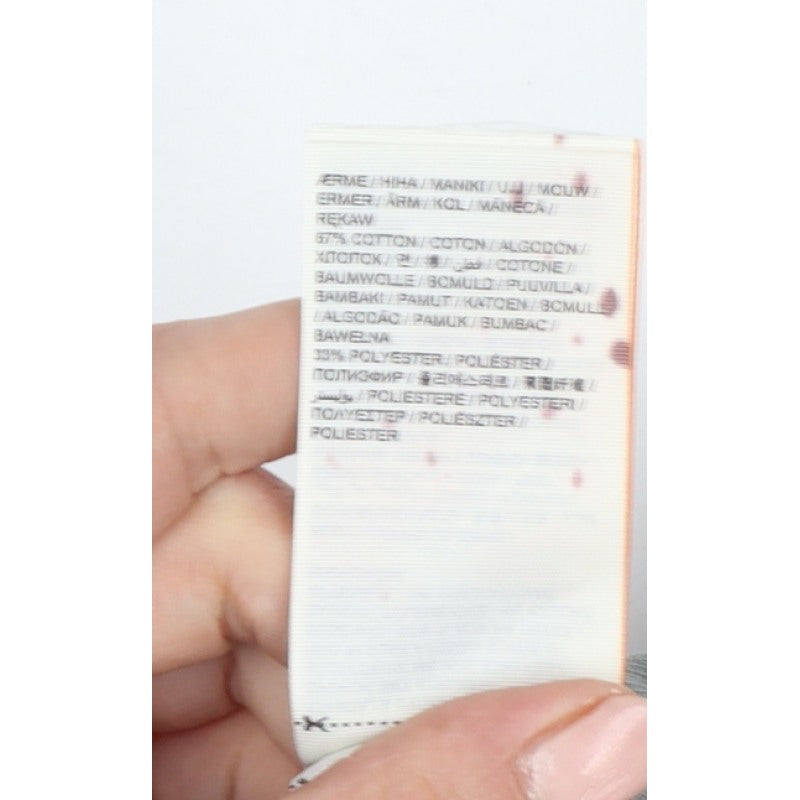 ÆRME / HIHA / MANIKI / / MOUW /
ERMER / ÄRM / KOL / MÂNECĂ /
RĘKAW
67% COTTON / COTON / ALGODÓN /
ХЛОПОК / 면 / 棉 / قطن / COTONE /
BAUMWOLLE / BOMULD / PUUVILLA /
ΒΑΜΒΑΚΙ / PAMUT / KATOEN / BOMULL
/ ALGODÃO / PAMUK / BUMBAC /
BAWEŁNA
33% POLYESTER / POLIÉSTER /
ПОЛИЭФИР / 폴리에스테르 / 聚酯纤维 /
بوليستر / POLIESTERE / POLYESTERI /
ΠΟΛΥΕΣΤΕΡ / POLIÉSZTER /
POLIESTER